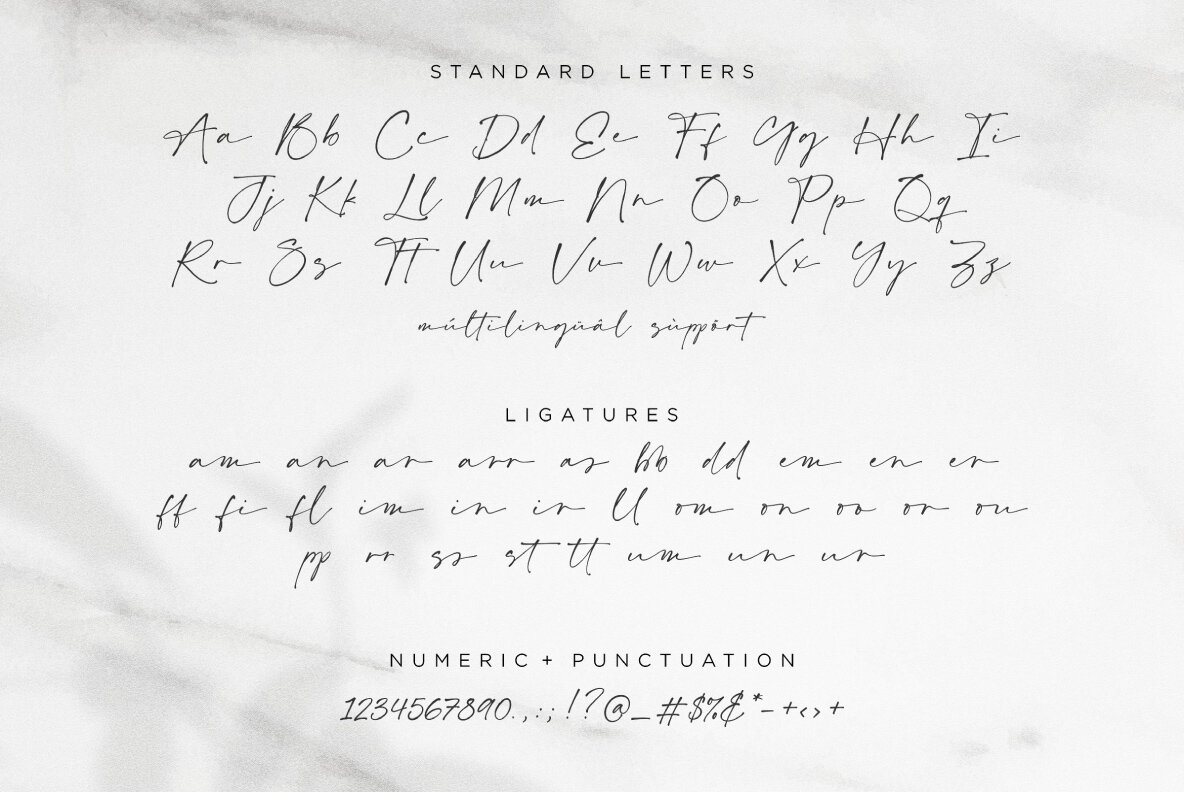 STANDARD LETTERS
Aa Bb Cc Dd Ee Ff Gg Hh Ii
Jj Kk Ll Mm Nn Oo Pp Qq
Rr Ss Tt Uu Vv Ww Xx Yy Zz
múltilingüâl sùppört
LIGATURES
am an ar arr as bb dd em en er
ff fi fl im in ir ll om on oo or ou
pp rr ss st tt um un ur
NUMERIC + PUNCTUATION
1234567890.,:;!?@_#$%&*-+‹›+